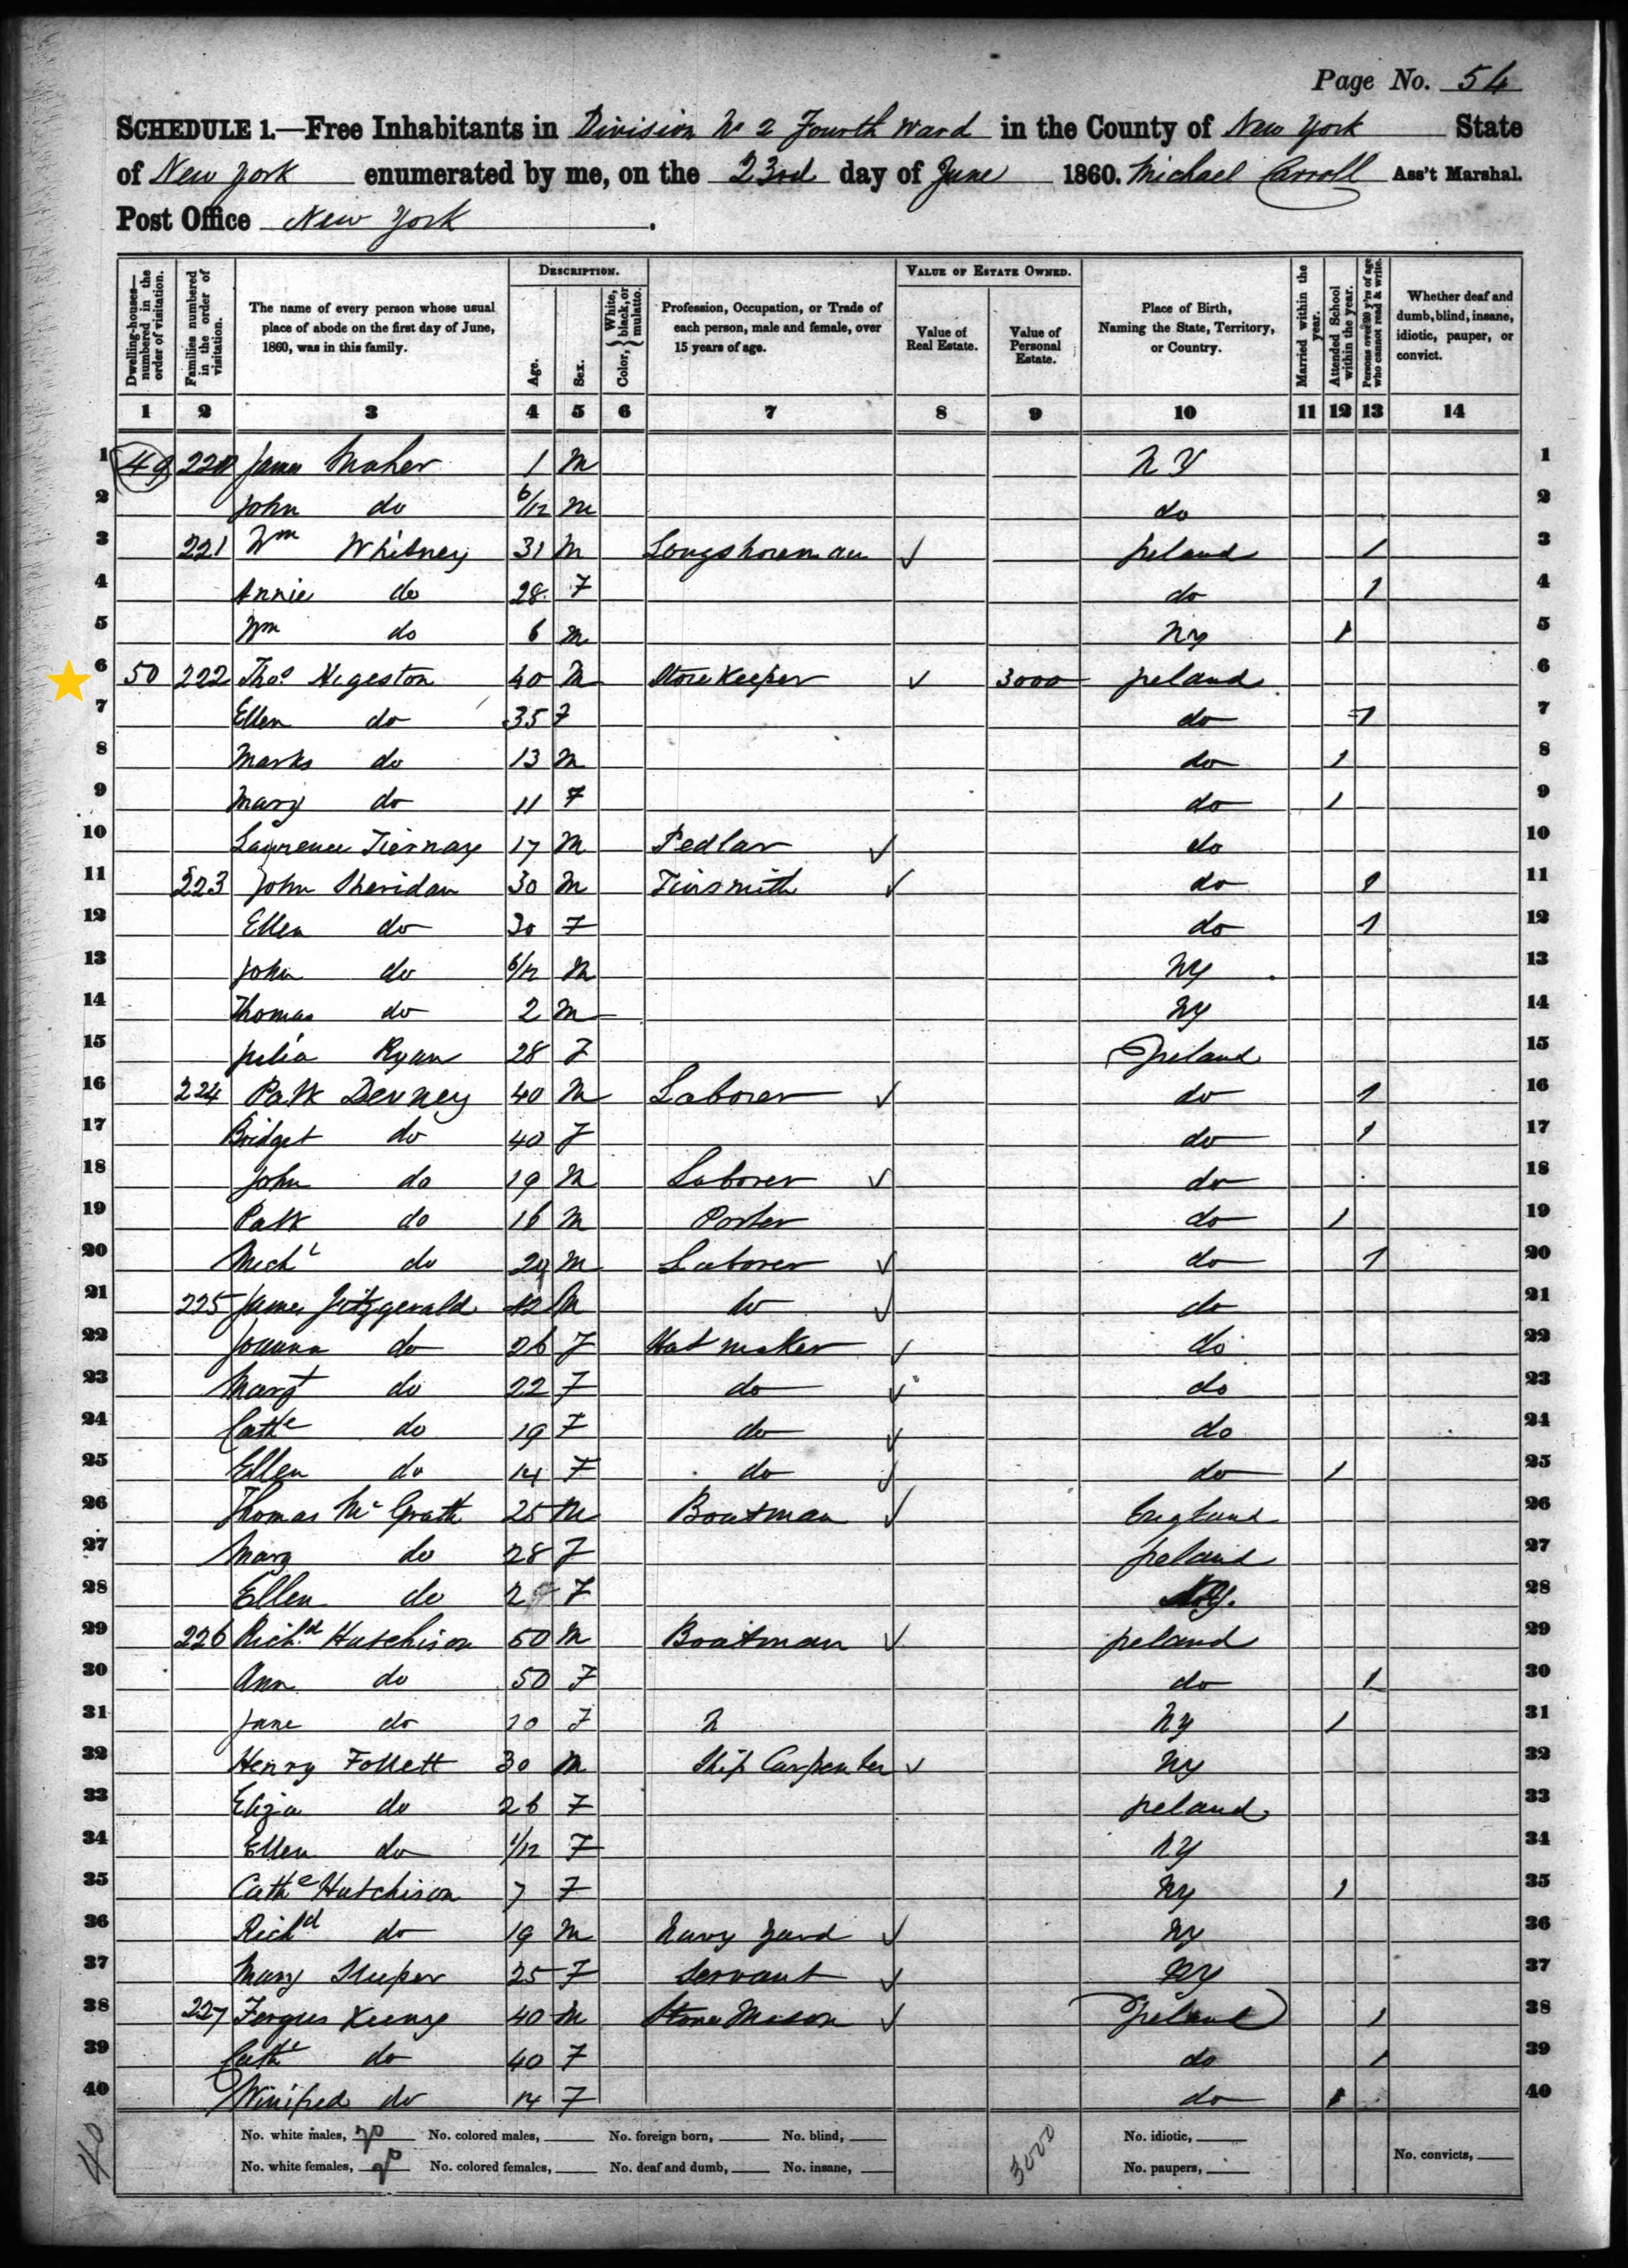 Page No. 54
SCHEDULE 1.—Free Inhabitants in Division No 2 Fourth Ward in the County of New York State
of New York enumerated by me, on the 23rd day of June 1860. Michael Carroll Ass't Marshal.
Post Office New York.
DESCRIPTION. VALUE OF ESTATE OWNED.
Dwelling-houses—numbered in the order of visitation.
Families numbered in the order of visitation.
The name of every person whose usual place of abode on the first day of June, 1860, was in this family.
Age.
Sex.
Color, { White, black, or mulatto.
Profession, Occupation, or Trade of each person, male and female, over 15 years of age.
Value of Real Estate.
Value of Personal Estate.
Place of Birth, Naming the State, Territory, or Country.
Married within the year.
Attended School within the year.
Persons over 20 y'rs of age who cannot read & write.
Whether deaf and dumb, blind, insane, idiotic, pauper, or convict.
1 2 3 4 5 6 7 8 9 10 11 12 13 14
1 49 220 James Maher 1 M N Y 1
2 John do 6/12 M do 2
3 221 Wm Whitney 31 M Longshoreman ✓ Ireland 1 3
4 Annie do 28 F do 1 4
5 Wm do 6 M NY 1 5
6 50 222 Thos Negeston 40 M Store Keeper ✓ 3000 Ireland 6
7 Ellen do 35 F do 1 7
8 Marks do 13 M do 1 8
9 Mary do 11 F do 1 9
10 Lawrence Tiernay 17 M Pedlar ✓ do 10
11 223 John Sheridan 30 M Tinsmith ✓ do 1 11
12 Ellen do 30 F do 1 12
13 John do 6/12 M NY 13
14 Thomas do 2 M NY 14
15 Julia Ryan 28 F Ireland 15
16 224 Patk Devney 40 M Laborer ✓ do 1 16
17 Bridget do 40 F do 1 17
18 John do 19 M Laborer ✓ do 18
19 Patk do 16 M Porter do 1 19
20 Michl do M Laborer ✓ do 1 20
21 225 James Fitzgerald 42 M do ✓ do 21
22 Joanna do 26 F Hat maker ✓ do 22
23 Margt do 22 F do ✓ do 23
24 Cathe do 19 F do ✓ do 24
25 Ellen do 14 F do ✓ do 1 25
26 Thomas McGrath 25 M Boatman ✓ England 26
27 Mary do 28 F Ireland 27
28 Ellen do 2 F NY. 28
29 226 Richd Hutchison 50 M Boatman ✓ Ireland 29
30 Ann do 50 F do 1 30
31 Jane do 20 F NY 1 31
32 Henry Follett 30 M Ship Carpenter ✓ NY 32
33 Eliza do 26 F Ireland 33
34 Ellen do 1/12 F NY 34
35 Cathe Hutchison 7 F NY 1 35
36 Richd do 19 M Navy Yard ✓ NY 36
37 Mary 25 F Servant ✓ NY 37
38 227 Fergus Kenny 40 M Stone Mason ✓ Ireland 1 38
39 Cath do 40 F do 1 39
40 Winifred do 14 F do 1 40
No. white males, No. colored males, No. foreign born, No. blind, 3000 No. idiotic,
No. white females, No. colored females, No. deaf and dumb, No. insane, No. paupers, No. convicts,
40